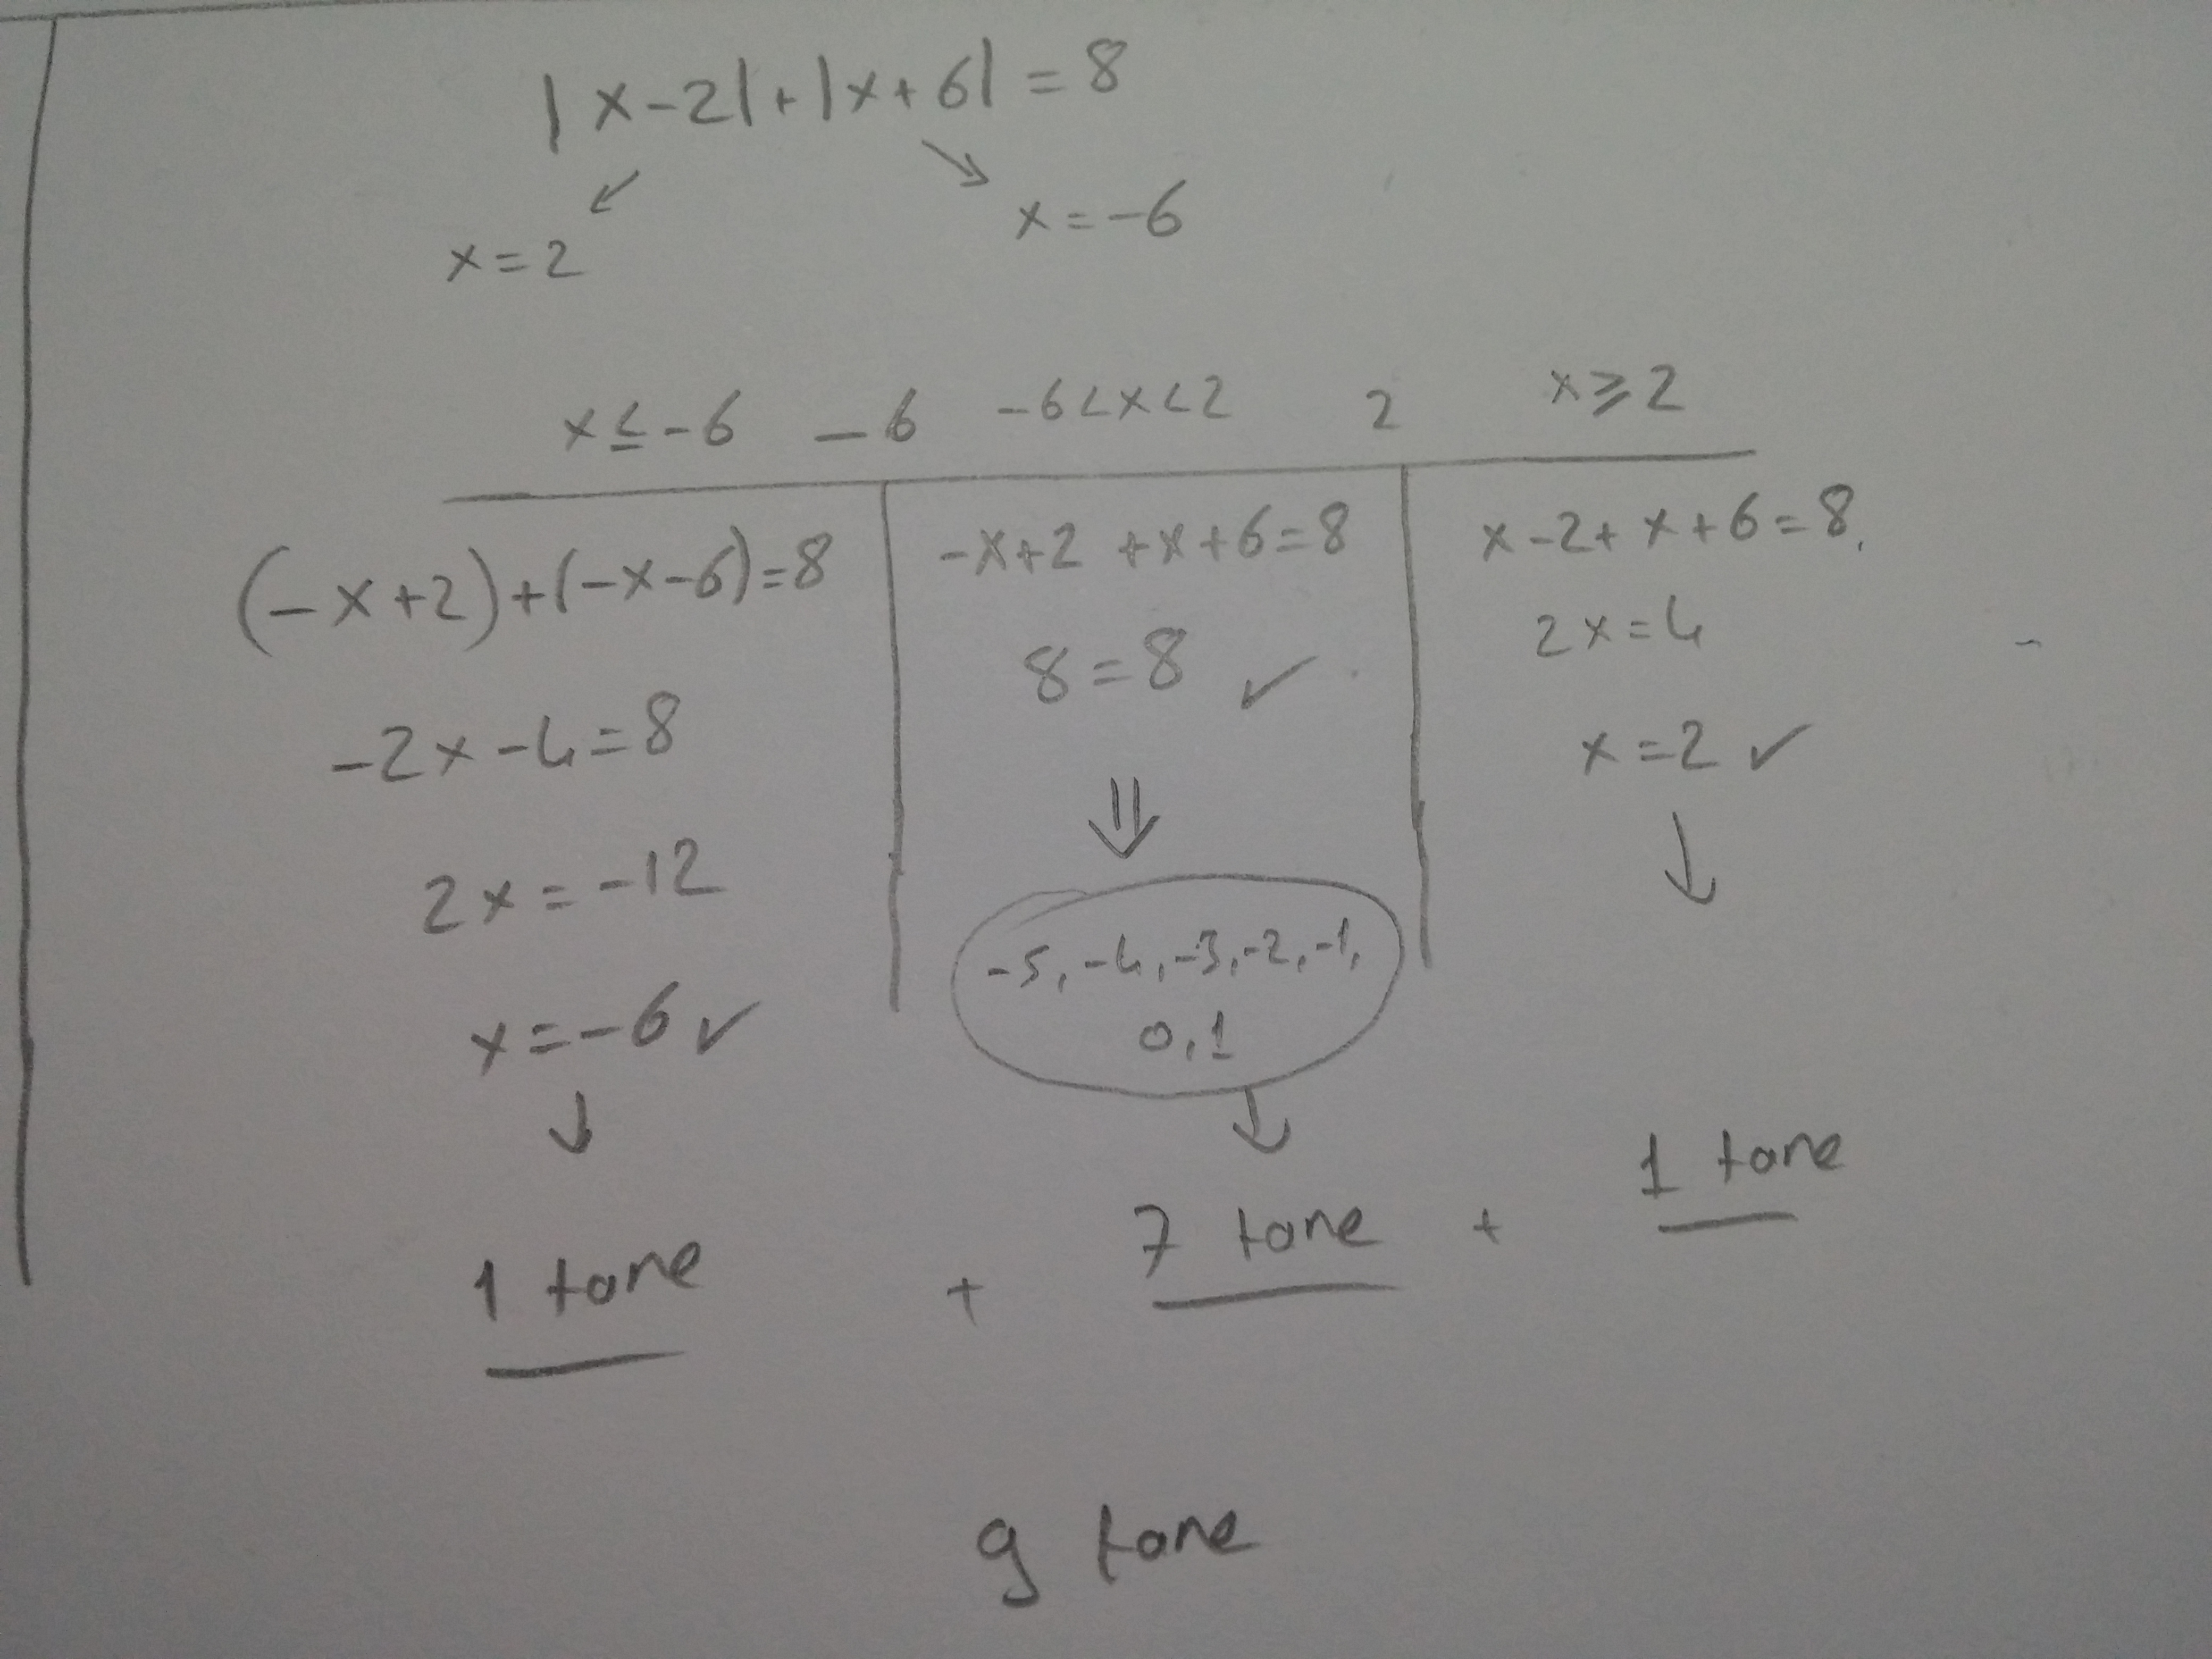 |x-2|+|x+6|=8
x=2
x=-6
x≤-6 -6 -6<x<2 2 x≥2
(-x+2)+(-x-6)=8
-2x-4=8
2x=-12
x=-6✓
↓
1 tane
-x+2+x+6=8
8=8 ✓
⇓
-5,-4,-3,-2,-1,
0,1
↓
+ 7 tane +
x-2+x+6=8
2x=4
x=2 ✓
↓
1 tane
9 tane